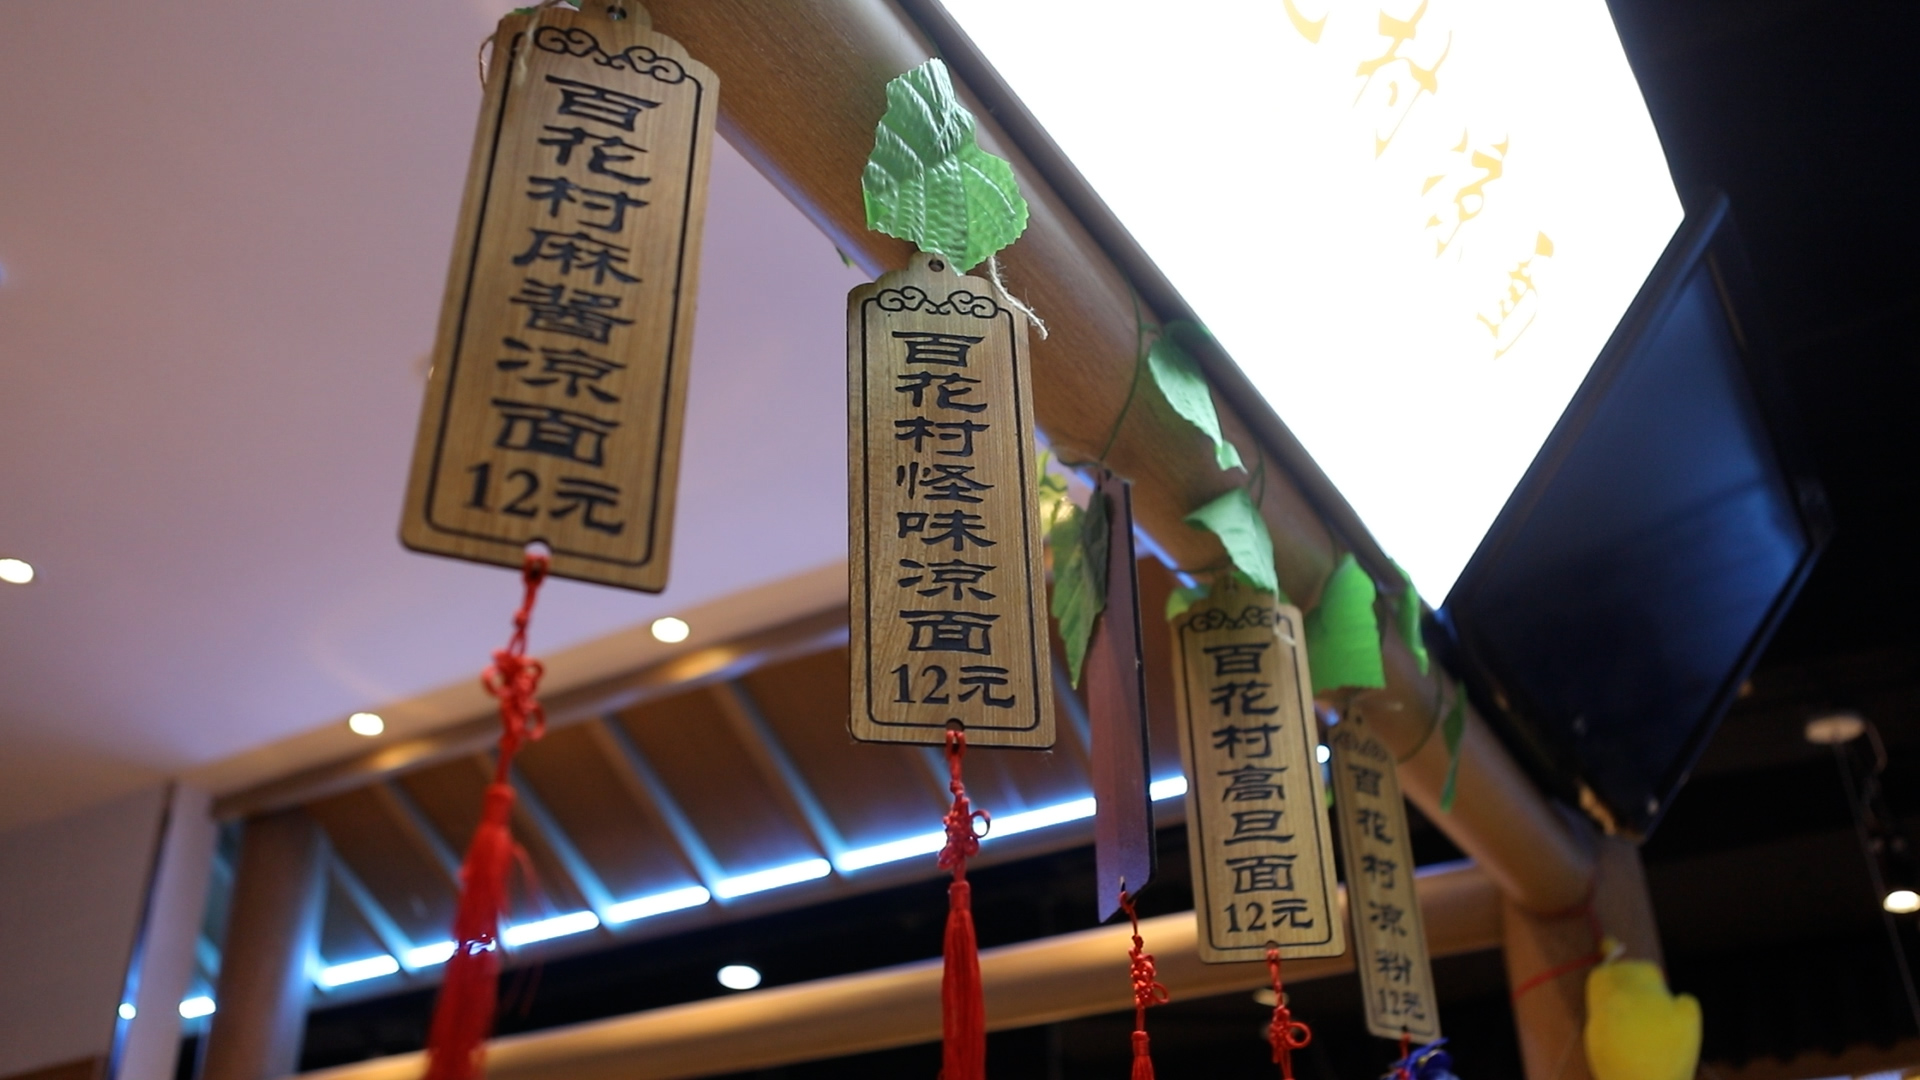 百花村麻酱凉面
12元
百花村怪味凉面
12元
百花村高旦面
12元
百花村凉粉
12元